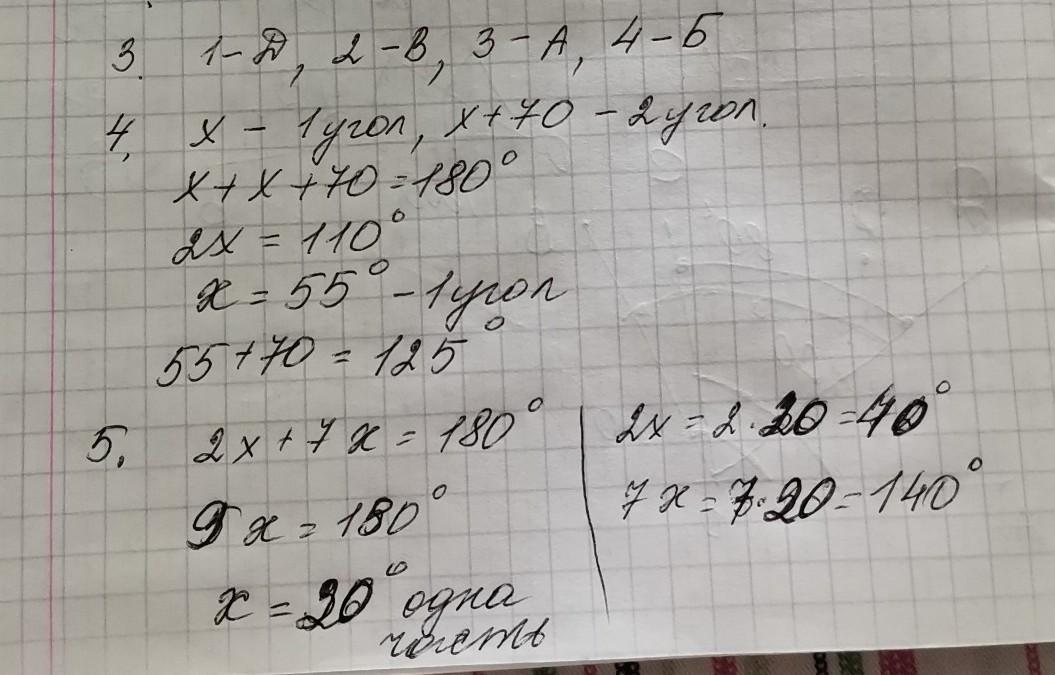 3. 1-Д, 2-В, 3-А, 4-Б
4. x - 1угол, x+70 - 2угол.
x+x+70=180°
2x = 110°
x = 55° - 1угол
55+70 = 125°
5. 2x+7x=180°
9x=180°
x=20° одна
часть
2x=2·20=40°
7x=7·20=140°